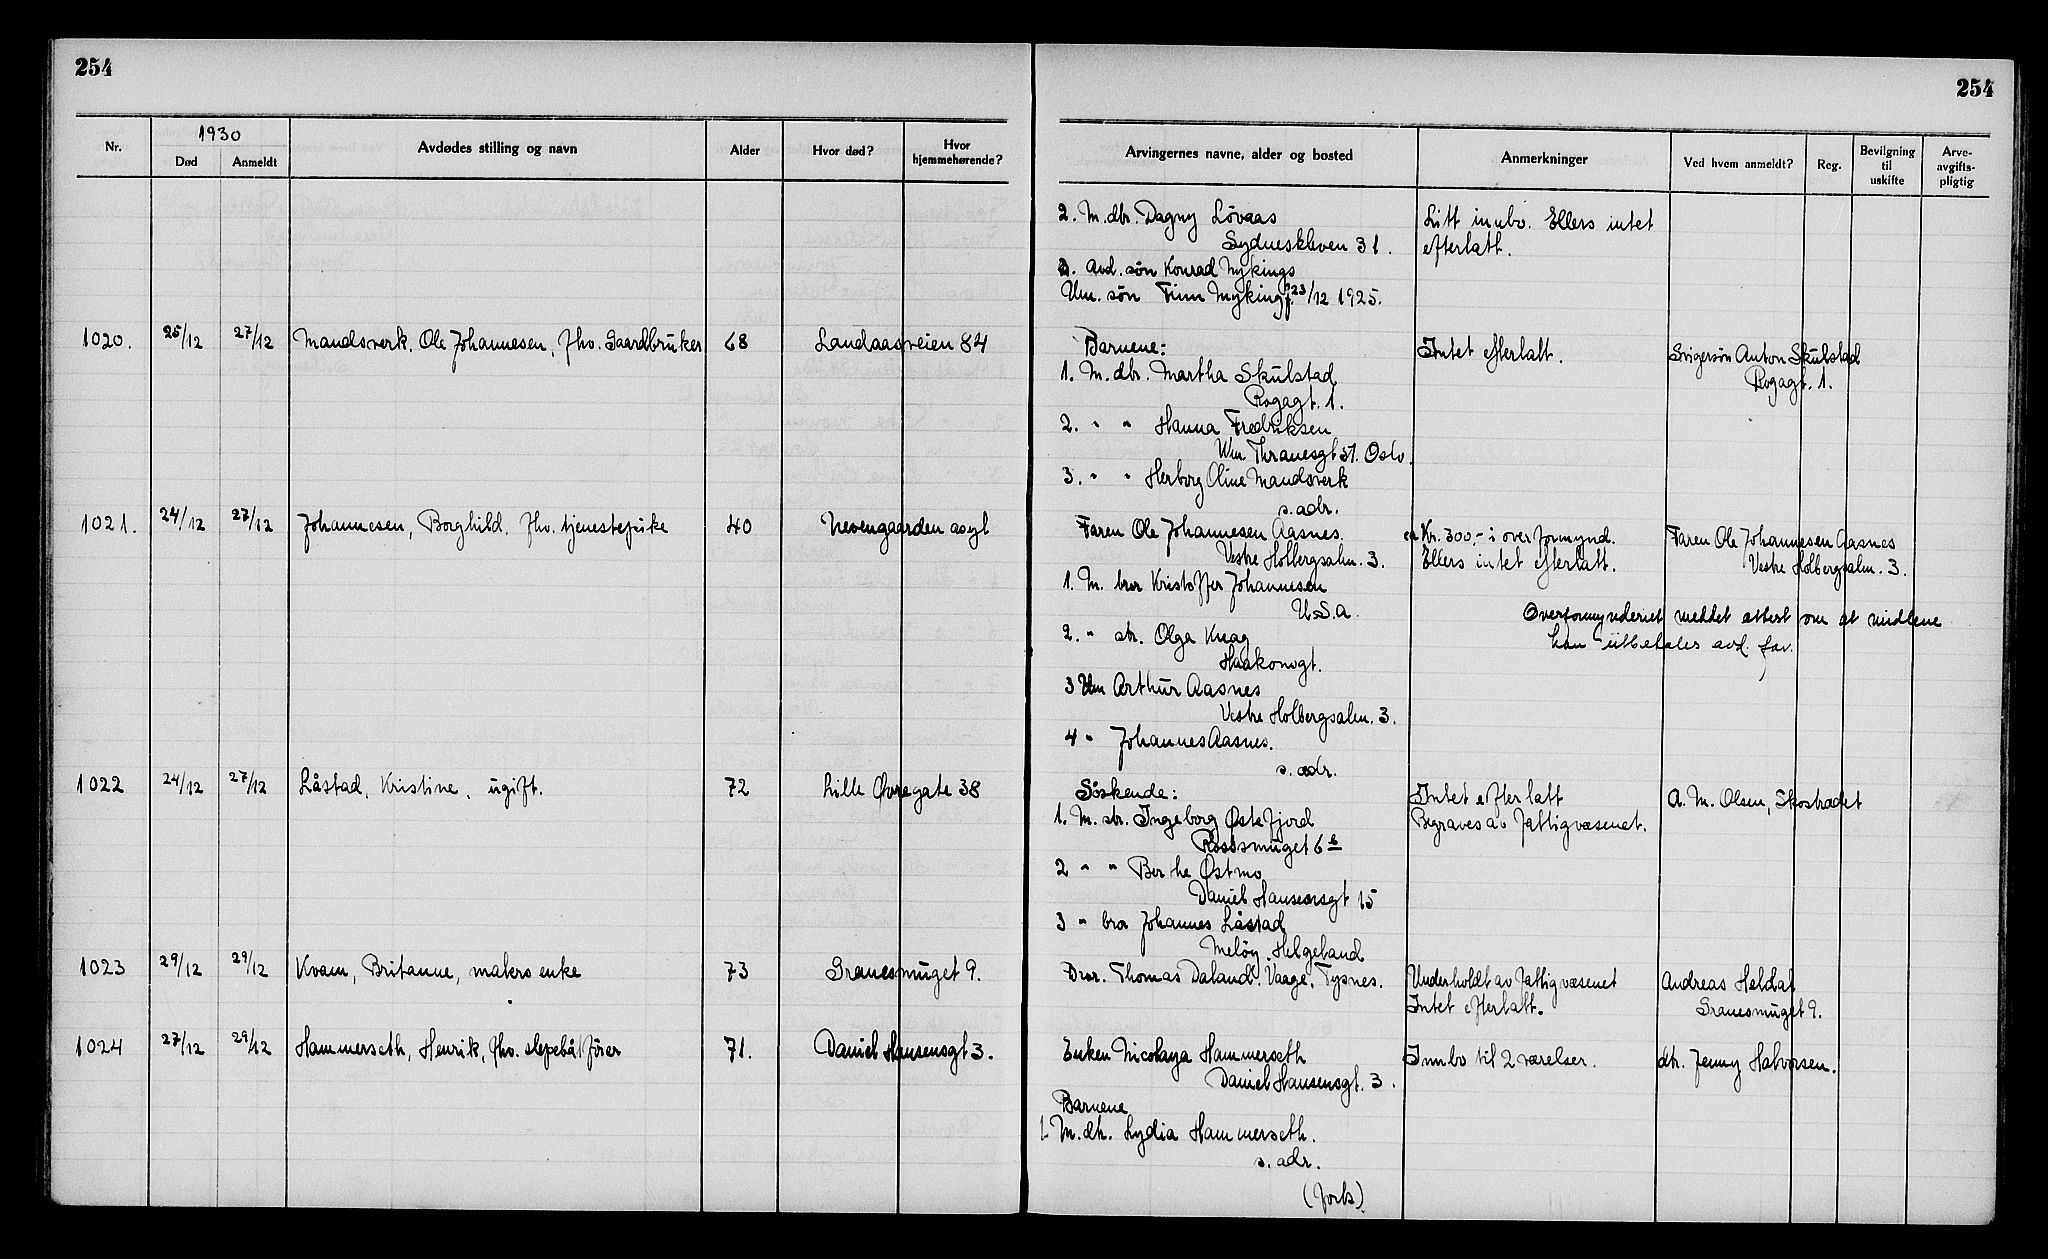 254
254
1930
Nr.
Død
Anmeldt
Avdødes stilling og navn
Alder
Hvor død?
Hvor hjemmehørende?
Arvingernes navne, alder og bosted
Anmerkninger
Ved hvem anmeldt?
Reg.
Bevilgning til uskifte
Arve-avgifts-pligtig
2. M. dtr. Dagny Lövaas
Sydneskleven 31.
Litt innbo. Ellers intet
efterlatt.
3. Avd. søn Konrad Nykings
Um. søn Finn Myking f. 23/12 1925.
1020. 25/12 27/12 Mandsverk, Ole Johannesen, fhv. Gaardbruker 68 Landaasveien 84
Barnene:
Intet efterlatt.
Svigersøn Anton Skulstad
Rogagt. 1.
1. M. dtr. Martha Skulstad
Rogagt. 1.
2. " " Hanna Fredriksen
Wm. Thranesgt 37. Oslo.
3. " " Herborg Oline Mandsverk
s. adr.
1021. 24/12 27/12 Johannesen, Borghild, fhv. tjenestepike 40 Nevengaarden asyl
Faren Ole Johannesen Aasnes.
Vestre Holbergsalm. 3.
ca Kr. 300,- i overformynd.
Ellers intet efterlatt.
Faren Ole Johannesen Aasnes
Vestre Holbergsalm. 3.
1. M. bror Kristoffer Johannesen
U.S.A.
Overformynderiet meddet attest om at midlene
kan utbetales avd. far.
2. " str. Olga Knag
Haakonsgt.
3 Um Arthur Aasnes
Vestre Holbergsalm. 3.
4 " Johannes Aasnes.
s. adr.
1022 24/12 27/12 Låstad, Kristine, ugift. 72 Lille Øvregate 38
Söskende:
Intet efterlatt
Begraves av Fattigvæsenet.
A. M. Olsen, Skostrædet
1. M. str. Ingeborg Østefjord
Rossmuget 6 b
2 " " Berthe Østmo
Daniel Hansensgt 15
3 " bror Johannes Låstad
Melöy, Helgeland
1023 29/12 29/12 Kvam, Britanne, makers enke 73 Granesmuget 9.
Bror. Thomas Daland. Vaage, Tysnes.
Underholdt av Fattigvæsenet
Intet efterlatt.
Andreas Heldal
Granesmuget 9.
1024 27/12 29/12 Hammerseth, Henrik, fhv. slepebåtfører 71. Daniel Hansensgt 3.
Enken Nicolaya Hammerseth
Daniel Hansensgt. 3.
Innbo til 2 værelser.
dtr. Jenny Halvorsen.
Barnene
1. M. dtr. Lydia Hammerseth.
s. adr.
(forts.)